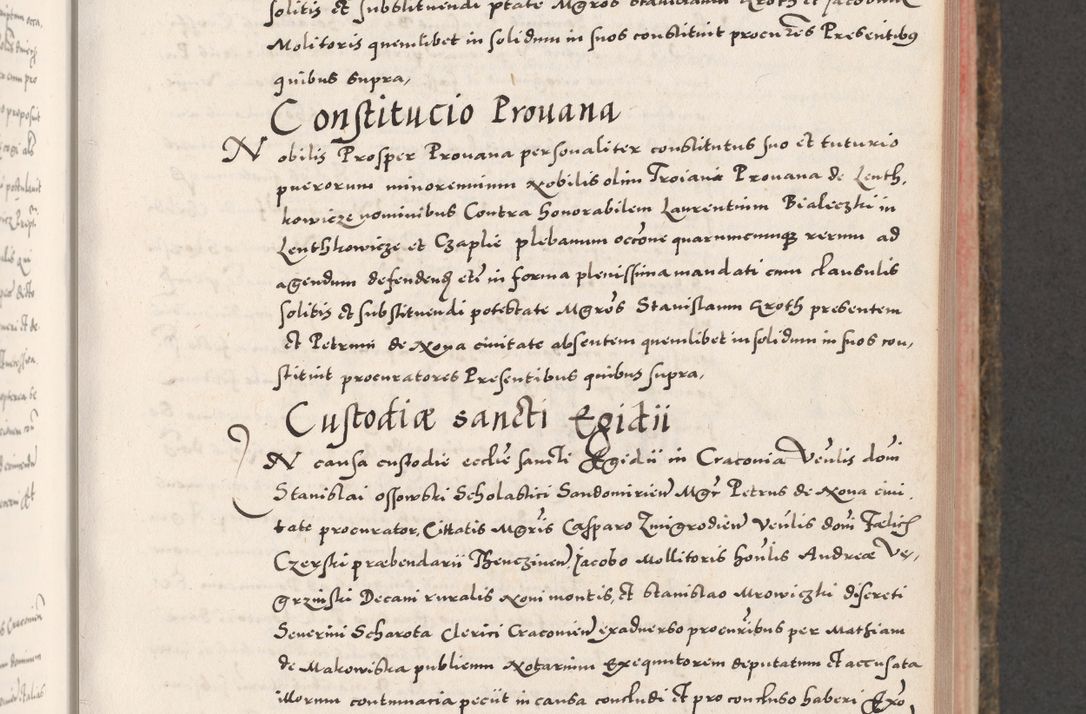 solitis et substituendi ptate Mgros Stanislaum Groth et Jacobum
Molitoris quemlibet in solidum in suos constituit procures Presentibus
quibus supra,
Constitucio Prouana
Nobilis Prosper Prouana personaliter constitutus suo et tutorio
puerorum minorennium Nobilis olim Troiani Prouana de Lenth,
kowicze nominibus Contra honorabilem Laurentium Bialeczki in
Lenthkowicze et Czaplie plebanum occone quarumcumque rerum ad
agendum defendend etc in forma plenissima mandati cum clausulis
solitis et substituendi potestate Mgros Stanislaum Groth presentem
et Petrum de Noua ciuitate absentem quemlibet in solidum in suos con,
stituit procuratores Presentibus quibus supra,
Custodiæ sancti Egidii
IN causa custodie ecclie sancti Egidii in Cracouia Venlis domi
Stanislai Ossowski Scholastici Sandomirien Mgr Petrus de Noua ciui,
tate procurator, Cittatis Mgris Casparo Zmigrodien Venlis domi Fælicis
Czerski præbendarii Thenczinen, Jacobo Mollitoris honlis Andreæ Ve,
grzinski Decani ruralis Noui montis, et Stanislao Mrowiczki discreti
Seuerini Scharota Clerici Cracouien exaduerso procuribus per Mathiam
de Makowiska publicum Notarium Exequutorem deputatum et accusata
illorum contumacia peciit in causa concludi et pro concluso haberi Exo